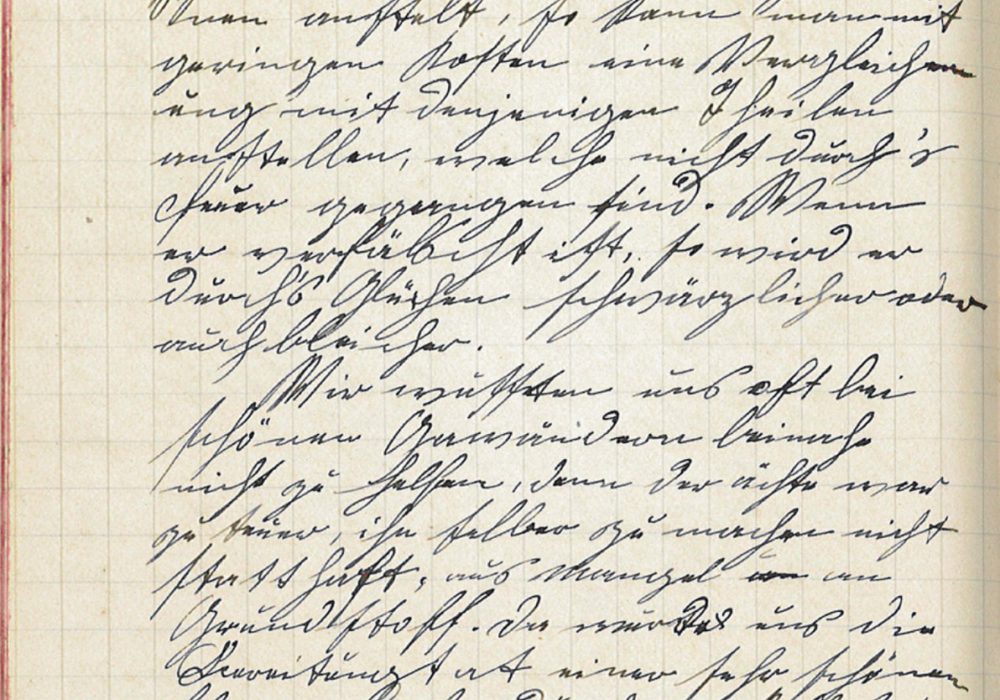 anstellt, so kann man mit
geringen Kosten eine Vergleichen
ung mit denjenigen Theilen
anstellen, welche nicht durch's
Feuer gegangen sind. Wenn
er verfälscht ist, so wird er
durch's Glühen schwärzlicher oder
auch bleicher.
Wir wußten uns oft bei
schönen Gewändern beinahe
nicht zu helfen, denn der ächte war
zu teuer, ihn selber zu machen nicht
statthaft, aus Mangel an
Grundstoff. Da wurde uns die
einer sehr schönen